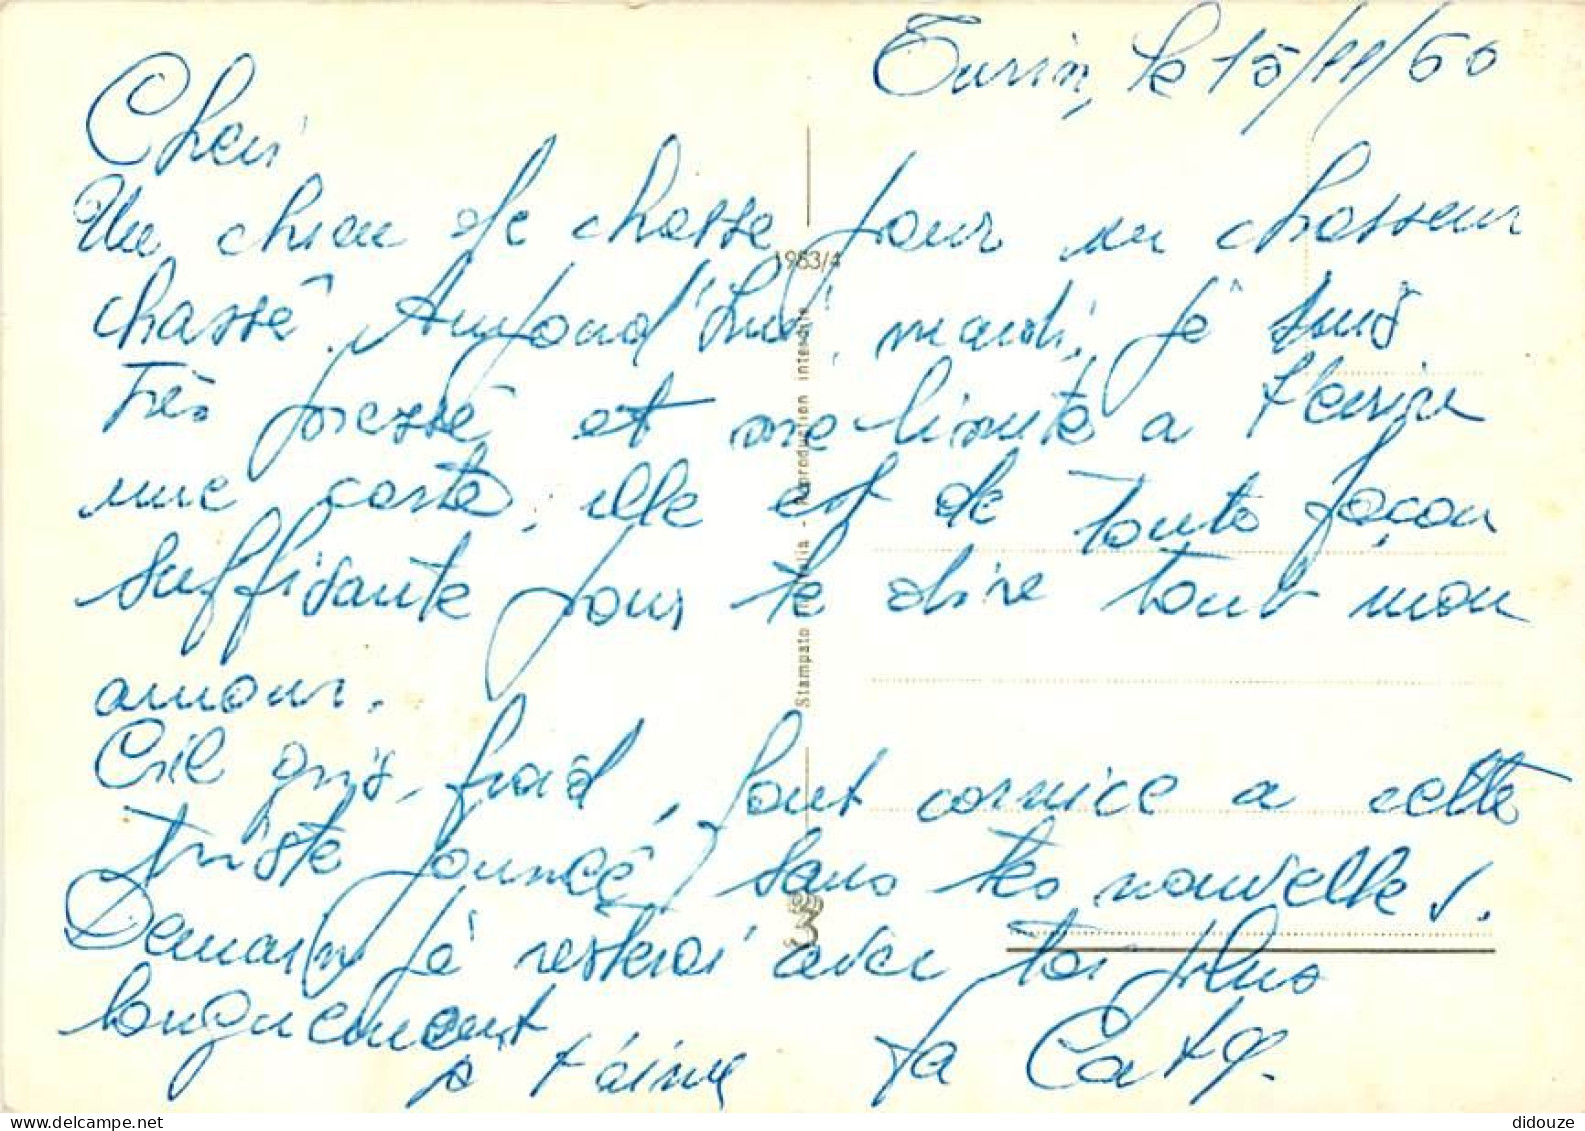 Turin, le 15/11/60
Cheri
Un chien de chasse pour un chasseur
chassé. Aujourd'hui, mardi, je suis
très pressé et me limite a t'ecrire
une carte, elle est de toute façon
suffisante pour te dire tout mon
amour.
Ciel gris, froid, font cornice a cette
triste journée sans tes nouvelles.
Demain je resterai avec toi plus
longuement
je t'aime ta Caty.
1983/4
Stampato in Italia - Reproduction interdite
3
didouze